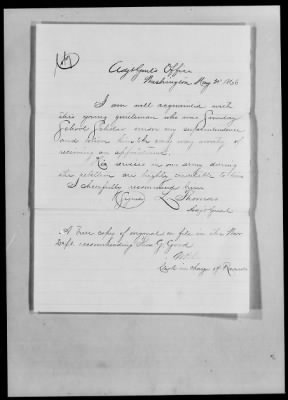 Adjt Genl's Office
Washington May 1866
I am well acquainted with
this young gentleman who was Sunday
School Scholar under my superintendence
and him in every way worthy of
receiving an appointment.
His services in our army during
the rebellion are highly creditable to him
I cheerfully recommend him
(Signed) L. Thomas
Adjt Genl
A true copy of original on file in the War
Dept recommending Geo. G.
Clerk in charge of